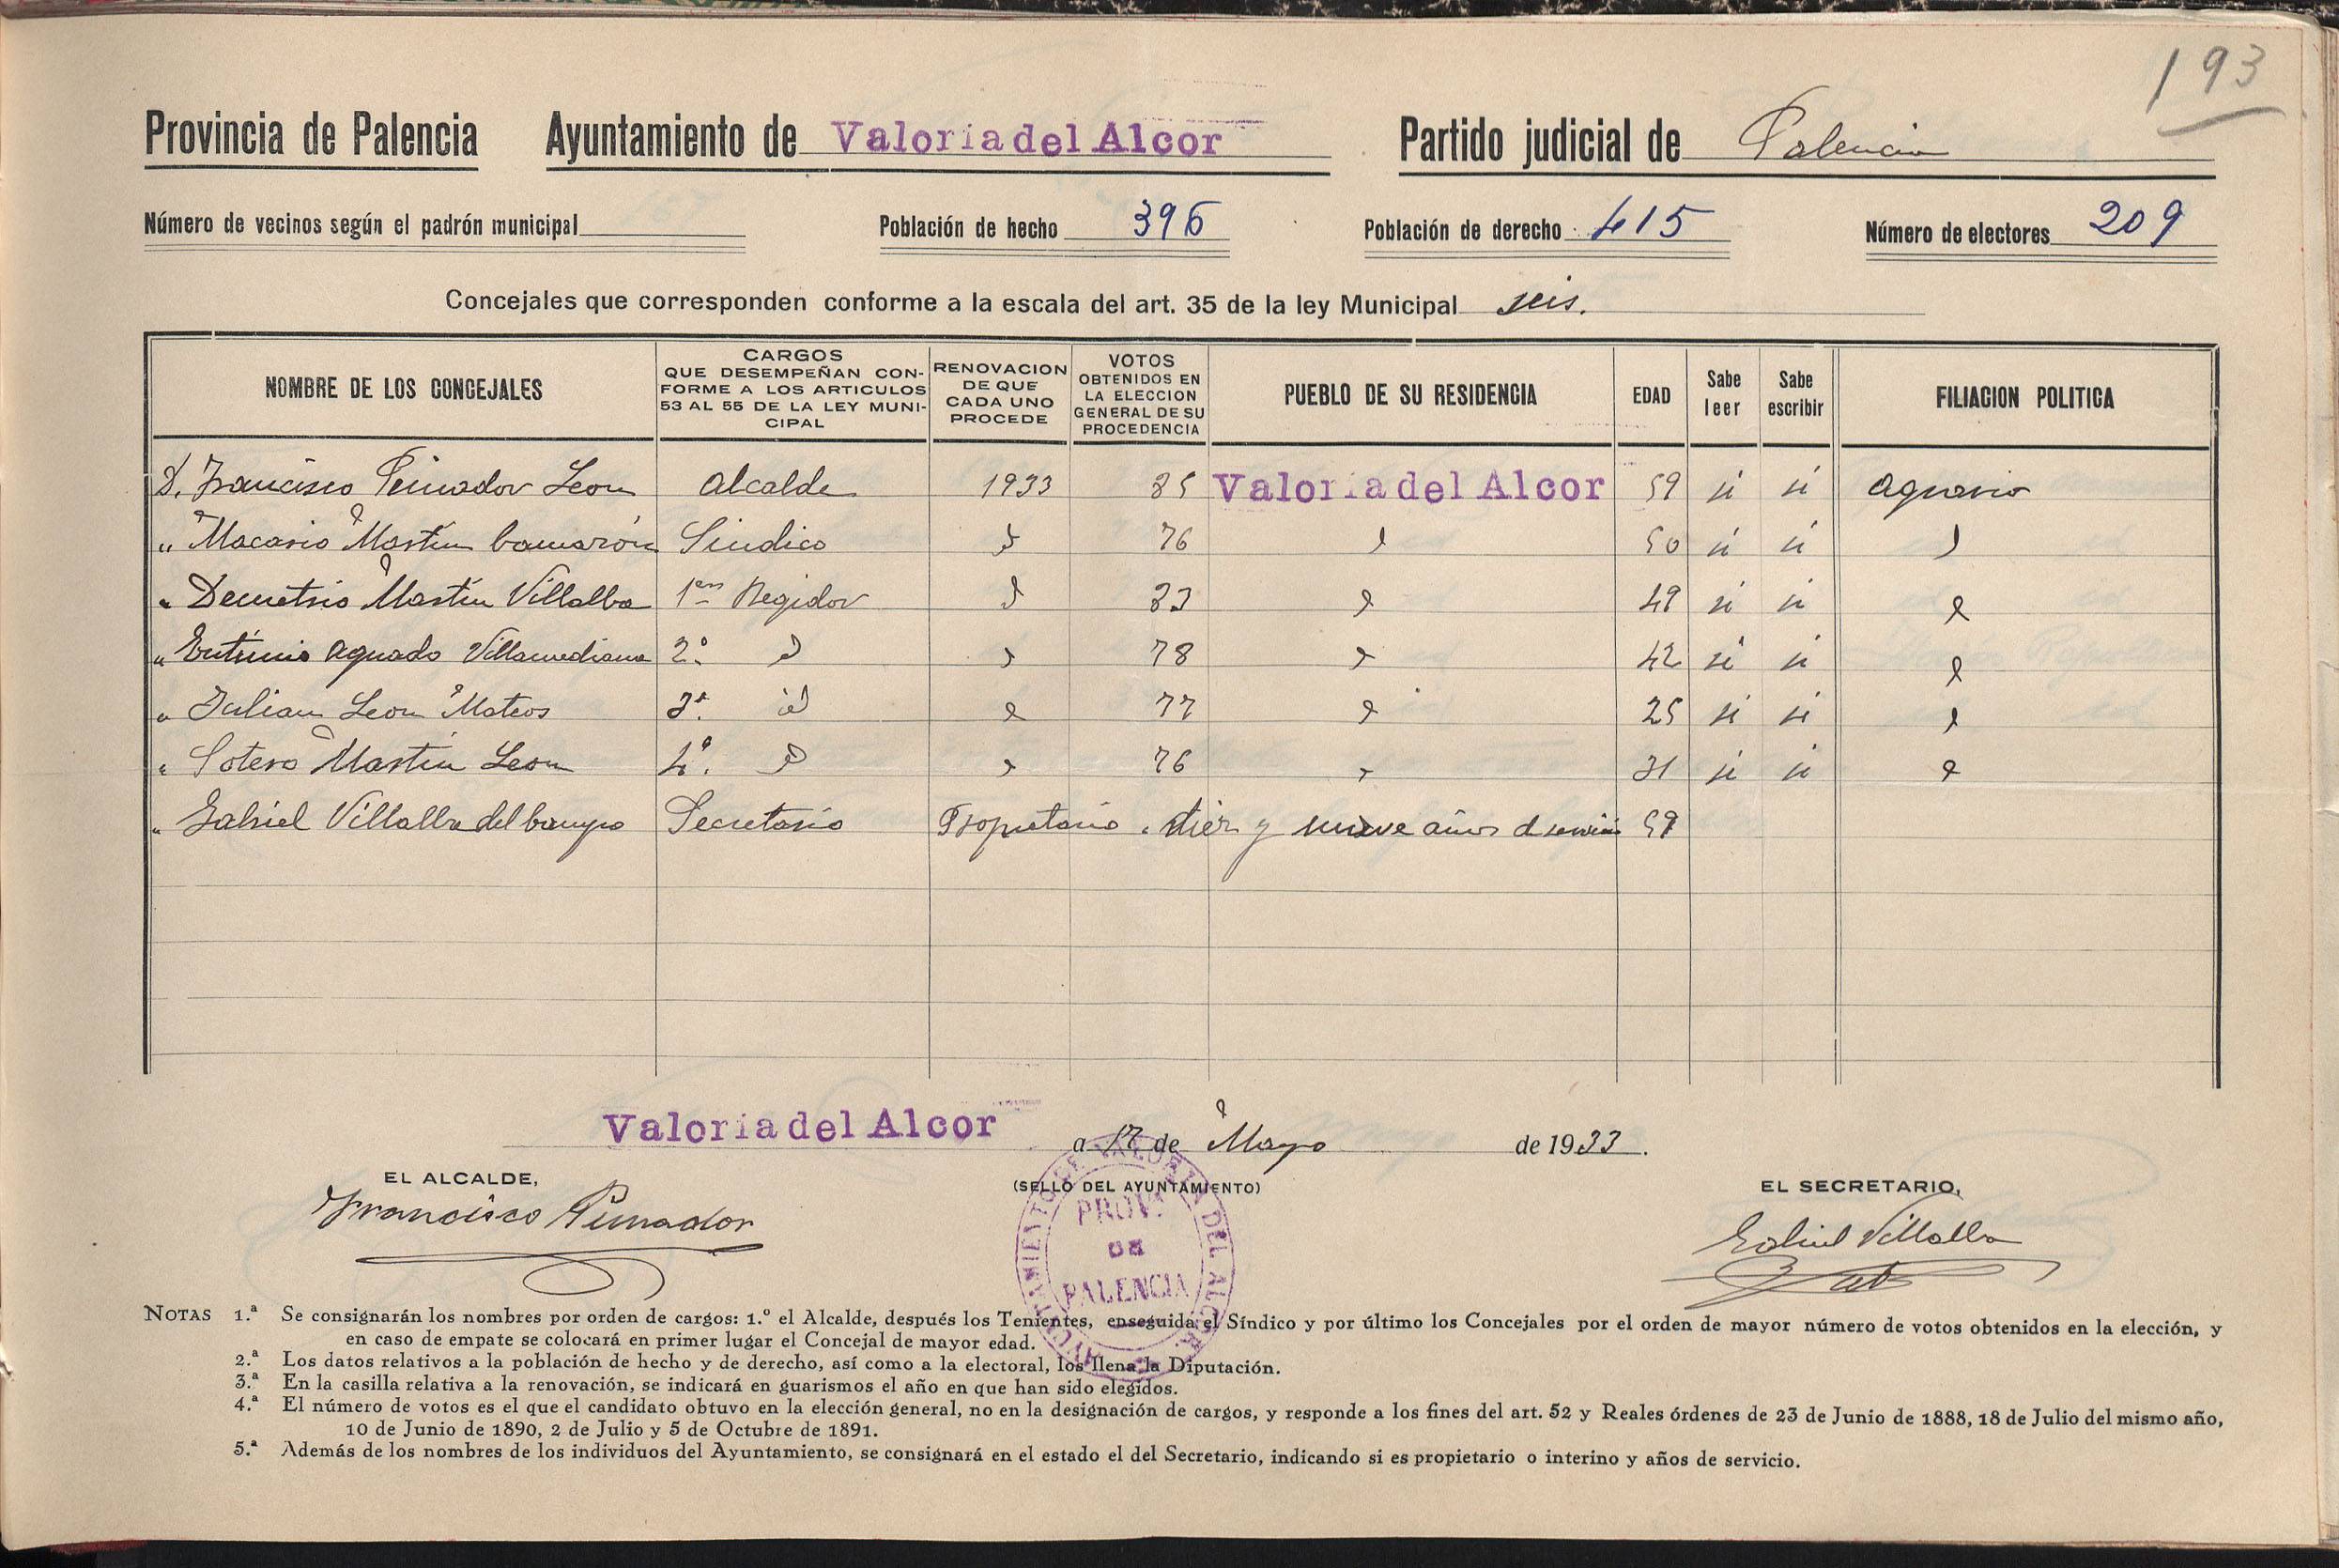 193
Provincia de Palencia Ayuntamiento de Valoria del Alcor Partido judicial de Palencia
Número de vecinos según el padrón municipal Población de hecho 396 Población de derecho 415 Número de electores 209
Concejales que corresponden conforme a la escala del art. 35 de la ley Municipal seis.
NOMBRE DE LOS CONCEJALES
CARGOS
QUE DESEMPEÑAN CON-
FORME A LOS ARTICULOS
53 AL 55 DE LA LEY MUNI-
CIPAL
RENOVACION
DE QUE
CADA UNO
PROCEDE
VOTOS
OBTENIDOS EN
LA ELECCION
GENERAL DE SU
PROCEDENCIA
PUEBLO DE SU RESIDENCIA
EDAD
Sabe
leer
Sabe
escribir
FILIACION POLITICA
D. Francisco Peinador Leon Alcalde 1933 85 Valoria del Alcor 59 si si agrario
" Macario Martin Camarón Sindico " 76 " 50 si si "
" Demetrio Martin Villalba 1er Regidor " 83 " 49 si si "
" Eutimio Aguado Villamediana 2º " " 78 " 42 si si "
" Julian Leon Mateos 3º id " 77 " 25 si si "
" Sotero Martin Leon 4º " " 76 " 31 si si "
" Gabriel Villalba del Campo Secretario Propietario. diez y nueve años d servicio 59
Valoria del Alcor a 17 de Mayo de 1933.
EL ALCALDE, (SELLO DEL AYUNTAMIENTO) EL SECRETARIO,
Francisco Peinador
Gabriel Villalba
AYUNTAMIENTO DE VALORIA DEL ALCOR
PROV.
DE
PALENCIA
NOTAS 1.ª Se consignarán los nombres por orden de cargos: 1.º el Alcalde, después los Tenientes, enseguida el Síndico y por último los Concejales por el orden de mayor número de votos obtenidos en la elección, y
en caso de empate se colocará en primer lugar el Concejal de mayor edad.
2.ª Los datos relativos a la población de hecho y de derecho, así como a la electoral, los llena la Diputación.
3.ª En la casilla relativa a la renovación, se indicará en guarismos el año en que han sido elegidos.
4.ª El número de votos es el que el candidato obtuvo en la elección general, no en la designación de cargos, y responde a los fines del art. 52 y Reales órdenes de 23 de Junio de 1888, 18 de Julio del mismo año,
10 de Junio de 1890, 2 de Julio y 5 de Octubre de 1891.
5.ª Además de los nombres de los individuos del Ayuntamiento, se consignará en el estado el del Secretario, indicando si es propietario o interino y años de servicio.